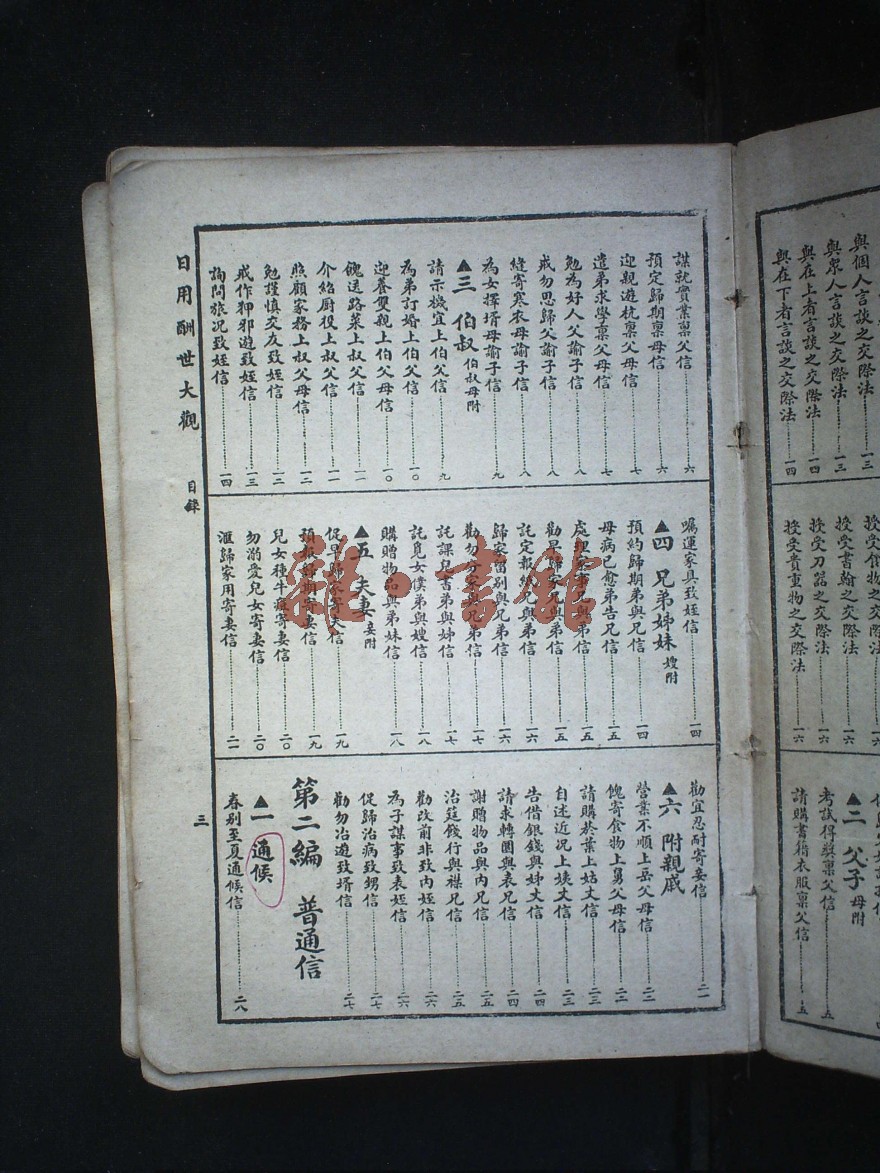 與個人言談之交際法……一三
與眾人言談之交際法……一三
與在上者言談之交際法……一四
與在下者言談之交際法……一四
授受書翰之交際法……一六
授受刀器之交際法……一六
授受貴重物之交際法……一六
▲二 父子 母附
考試得獎稟父信……五
請購書籍衣服稟父信……五
謀就實業稟父信……六
預定歸期稟母信……六
迎親遊杭稟父母信……七
遣弟求學稟父母信……七
勉為好人父諭子信……八
戒勿思歸父諭子信……八
縫寄寒衣母諭子信……八
為女擇壻母諭子信……九
▲三 伯叔 伯叔母附
請示機宜上伯父信……九
為弟訂婚上伯父信……一〇
迎養雙親上伯父母信……一〇
餽送路菜上叔父信……一一
介紹廚役上叔父信……一一
照顧家務上叔父母信……一二
勉謹慎交友致姪信……一二
戒作狎邪遊致姪信……一三
詢問旅況致姪信……一四
囑運家具致姪信……一四
▲四 兄弟姊妹 嫂附
預約歸期弟與兄信……一四
母病已愈弟告兄信……一五
處理家事兄與弟信……一五
勸早歸家兄與弟信……一五
託定報紙兄與弟信……一六
歸家留別與兄弟信……一六
勸勿分家與兄弟信……一七
託課兒書弟與姊信……一七
託覓女僕弟與嫂信……一八
購贈物品與弟妹信……一八
▲五 夫妻 妾附
促早歸家寄夫信……一九
預報歸期寄妻信……一九
兒女種牛痘寄妻信……二〇
勿溺愛兒女寄妻信……二〇
滙歸家用寄妻信……二一
勸宜忍耐寄妾信……二一
▲六 附親戚
營業不順上岳父母信……二二
餽寄食物上舅父母信……二二
請購菸葉上姑丈信……二三
自述近況上姨丈信……二三
告借銀錢與姊丈信……二四
請求轉圜與表兄信……二四
謝贈物品與內兄信……二五
治筵餞行與襟兄信……二五
勸改前非致內姪信……二六
為子謀事致表姪信……二六
促歸治病致甥信……二七
勸勿冶遊致壻信……二七
第二編 普通信
▲一 通候
春別至夏通候信……二八
日用酬世大觀 目錄 三
雜·書館